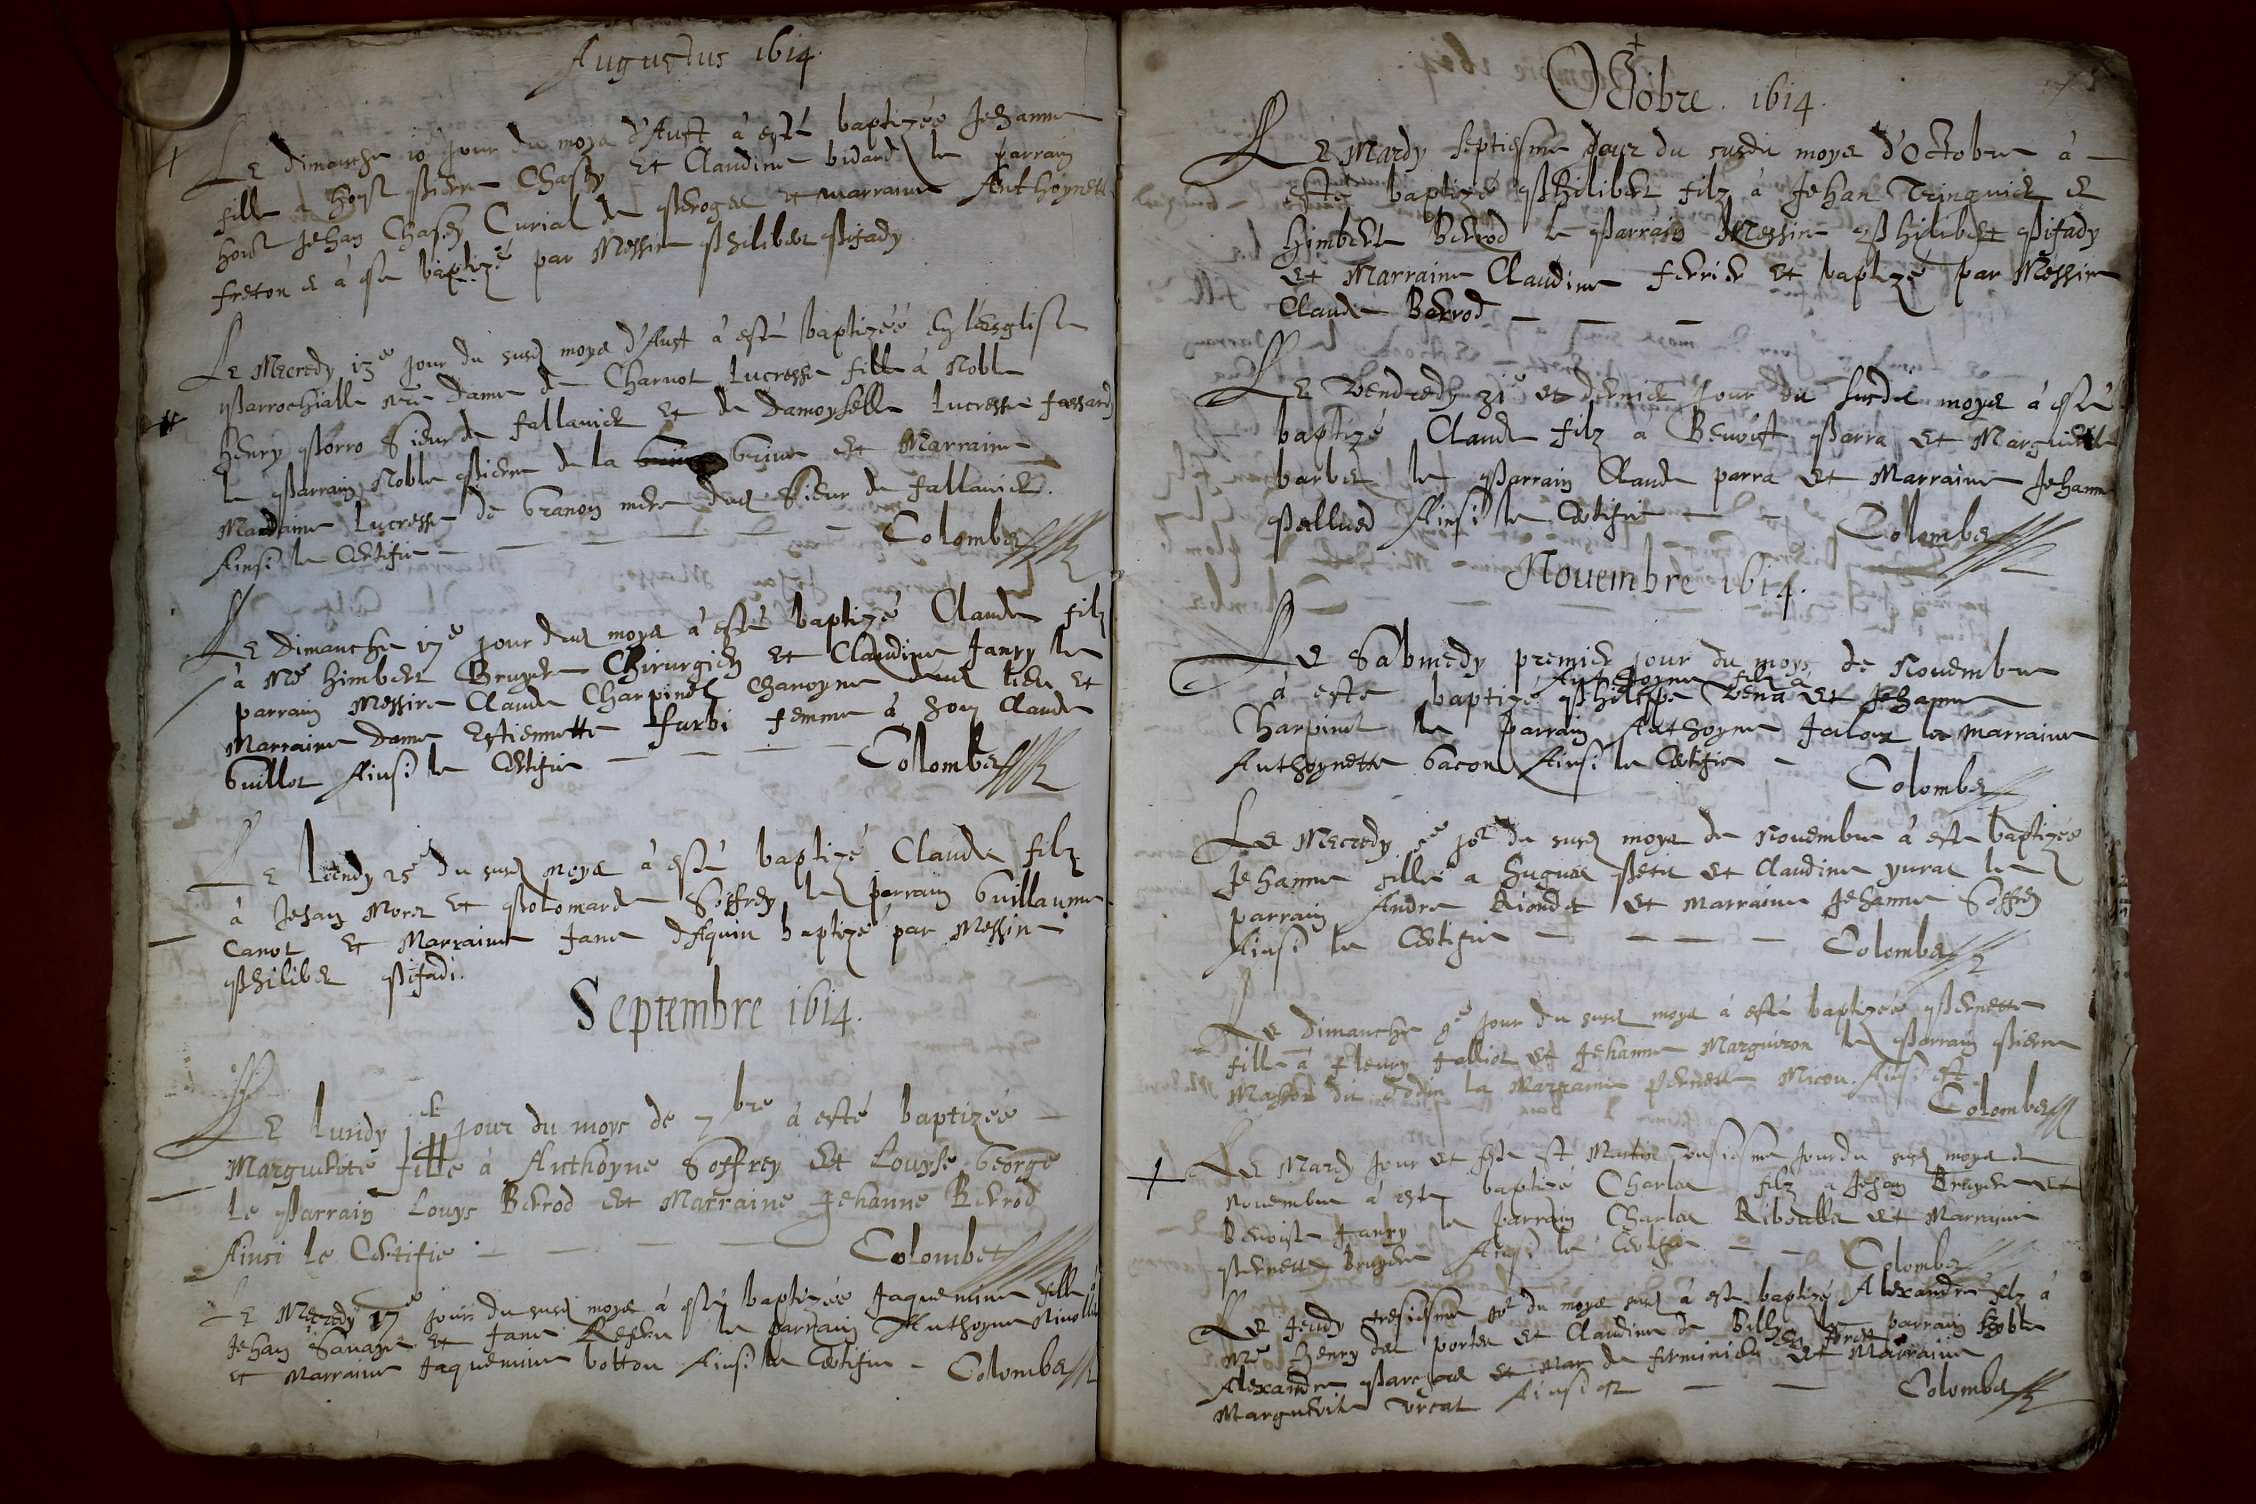 Augustus 1614.
Le dimanche 10 jour du moys d'Aust à esté baptizée Jehanne
fille à hoyst Pierre Chasey et Claudine bivard le parrain
hoist Jehan Chasey Curial de et marraine Anthoynette
freton et à esté baptizé par Messire Philibert Pifady
Le Mecredy 13e jour du susd moys d'Aust à esté baptizéé en l'esglise
Parrochialle nre dame de Charnot Lucresse fille à Noble
Henry Porro Sieur de fallavier et de damoyselle Lucresse
le Parrain Noble Pierre de la brive et Marraine
Madame Lucresse de Granon mere dud Sieur de fallavier.
Ainsi le Certifie - - - - - Colombet
Le Dimanche 17e jour dud moys à esté baptizé Claude filz
à Me himbert Bruyere Chirurgien et Claudine Janry le
parrain Messire Claude Charpinel Chanoyne dud lieu et
Marraine dame Estiennette furbi femme à hon Claude
Guillot Ainsi le Certifie - - - Colombet
Le Lundy 25e du susd moys à esté baptizé Claude filz
à Jehan More et Polomarde Soffrey le parrain Guillaume
Canot et Marraine Jane d'Aquin baptizé par Messire
Philibert Pifadi.
Septembre 1614.
Le Lundy jour du moys de 7bre à esté baptizée -
Marguerite fille à Anthoyne Soffrey et Louyse George
Le Parrain Louys Berrod et Marraine Jehanne Berrod
Ainsi le Certifie - - - - Colombet
Le Mecredy 17e jour du susd moys à esté baptizée Jaquemine fille à
Jehan Savage et Jane le parrain Anthoyne
et Marraine Jaquemine botton Ainsi le Certifie - Colombet
Octobre. 1614.
Le Mardy septiesme jour du susdit moys d'Octobre à -
esté baptizé Philibert filz à Jehan Tringuier et
Himberte Berrod le Parrain Messire Philibert Pifady
et Marraine Claudine ferrier et baptizé par Messire
Claude Berrod - - -
Le Vendredy 31e et dernier jour du susdit moys à esté
baptizé Claude filz à Benoist Parra et Marguerite
barbier le Parrain Claude parra et Marraine Jehanne
Ainsi le Certifie - - Colombet
Novembre 1614.
Le Sabmedy premier jour du moys de Novembre
Anthoyne filz à
à esté baptizé Philippe Vena et Jehanne
Charpinel le parrain Anthoyne la marraine
Anthoynette bacon Ainsi le Certifie - Colombet
Le Mecredy jor du susd moys de Novembre à esté baptizée
Jehanne fille à Hugues Petit et Claudine yvrat le
parrain Andre Riondet et marraine Jehanne Soffrey
Ainsi le Certifie - - - - Colombet
Le Dimanche 9e jour du susd moys à esté baptizéé Pernette
fille à fleury et Jehanne Marguiron le Parrain Pierre
Masson dit la Marraine Pernette Nicou. Ainsi est.
Colombet
Le Mardy jour et feste St Martin onsiesme jour du susd moys de
Novembre à esté baptizé Charles filz à Jehan Bruyere et
Benoiste Janry le parrain Charles Riboulle et Marraine
Pernette Bruyere Ainsi le Certifie - - Colombet
Le Jeudy tresiesme jor du moys susd à esté baptizé Alexandre filz à
Me Henry des portes et Claudine de parrain Noble
Alexandre et Marraine
Marguerite Ainsi est - - Colombet